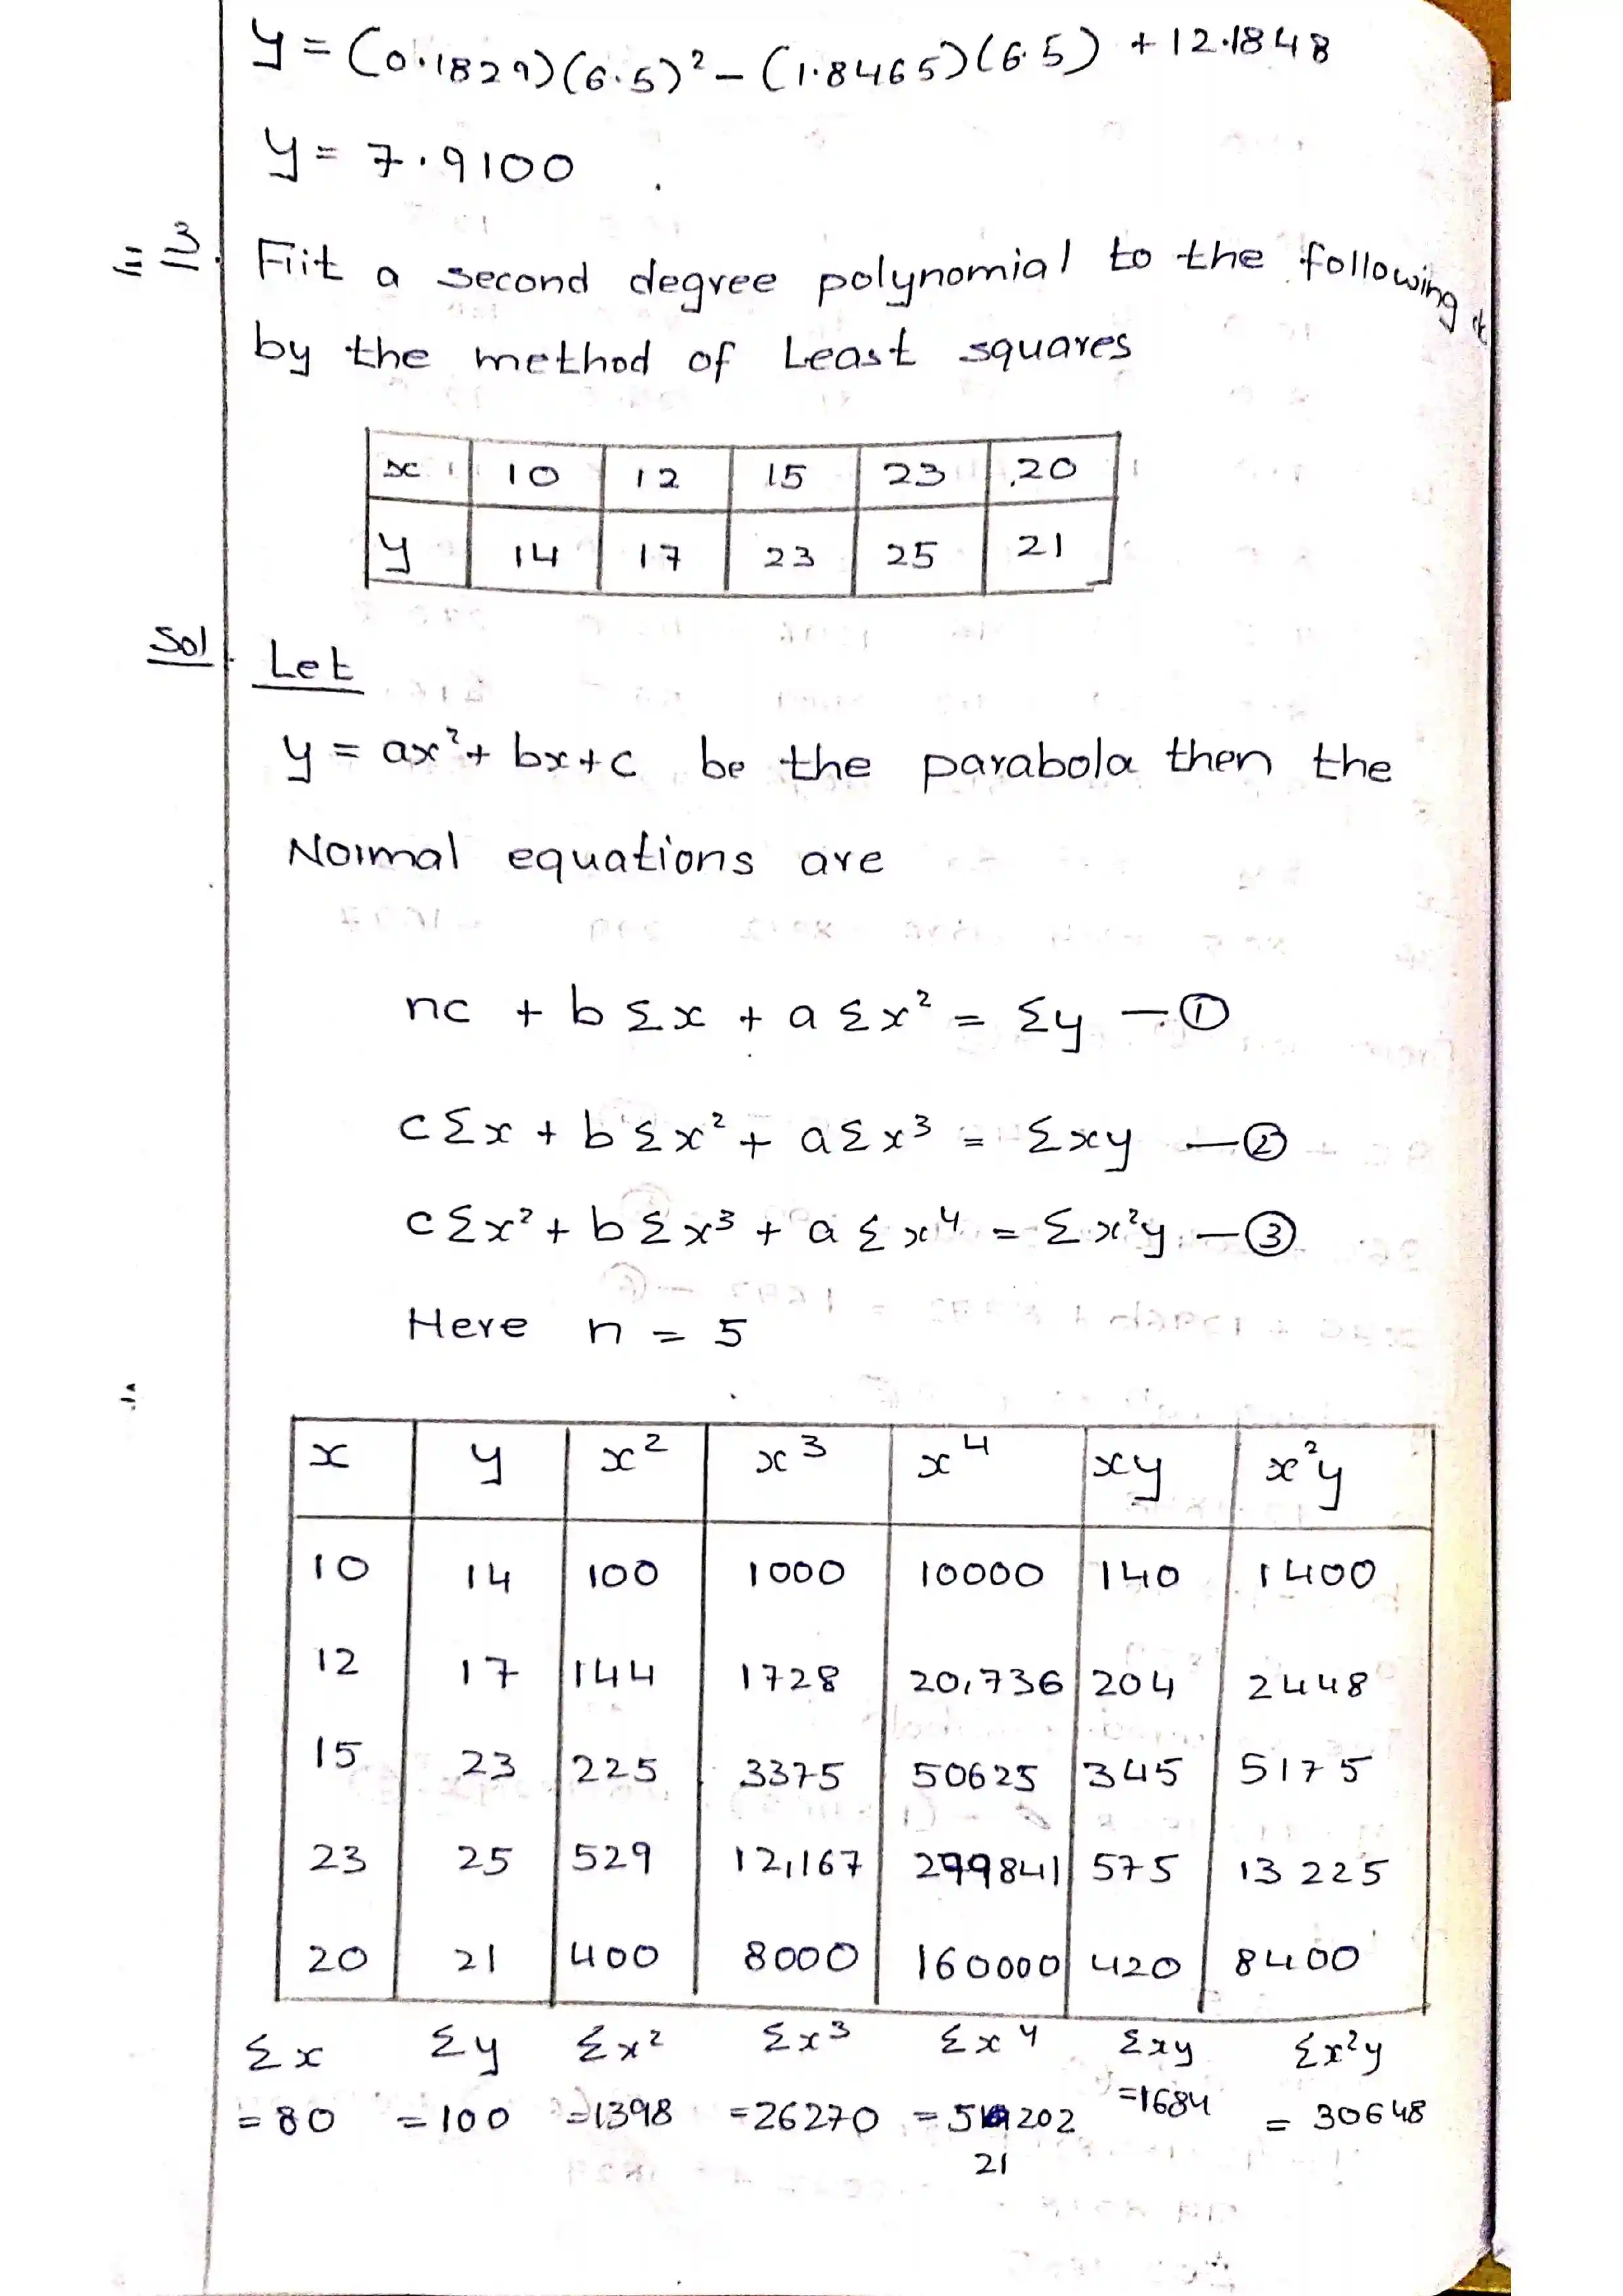 y = (0.1829)(6.5)² - (1.8465)(6.5) + 12.1848
y = 7.9100
3. Fiit a second degree polynomial to the following
by the method of Least squares
x 10 12 15 23 20
y 14 17 23 25 21
Sol. Let
y = ax² + bx + c be the parabola then the
Normal equations are
nc + b Σx + a Σx² = Σy — ①
cΣx + bΣx² + aΣx³ = Σxy — ②
cΣx² + bΣx³ + aΣx⁴ = Σx²y — ③
Here n = 5
x y x² x³ x⁴ xy x²y
10 14 100 1000 10000 140 1400
12 17 144 1728 20,736 204 2448
15 23 225 3375 50625 345 5175
23 25 529 12,167 279841 575 13225
20 21 400 8000 160000 420 8400
Σx Σy Σx² Σx³ Σx⁴ Σxy Σx²y
= 80 = 100 = 1398 = 26270 = 521202 = 1684 = 30648